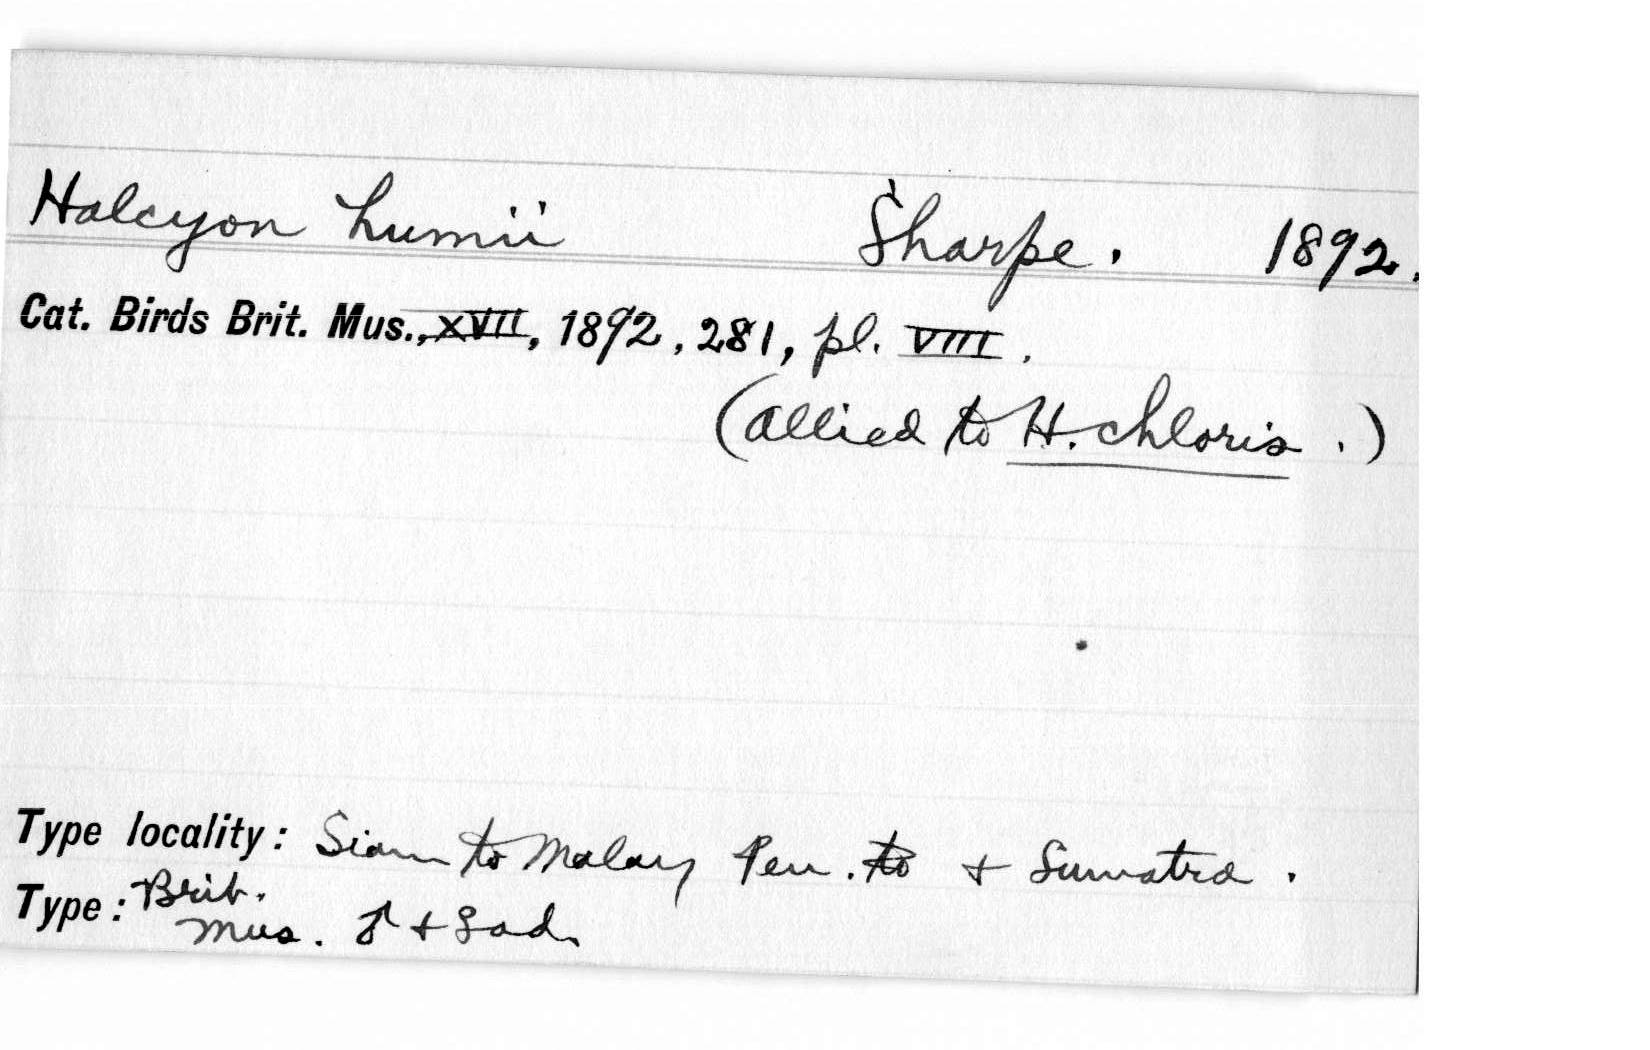 Halcyon humii Sharpe. 1892.
Cat. Birds Brit. Mus., XVII, 1892, 281, pl. VIII.
(Allied to H. chloris.)
Type locality: Siam to Malay Pen. to + Sumatra.
Type: Brit.
Mus. ♂ + ♀ ad.